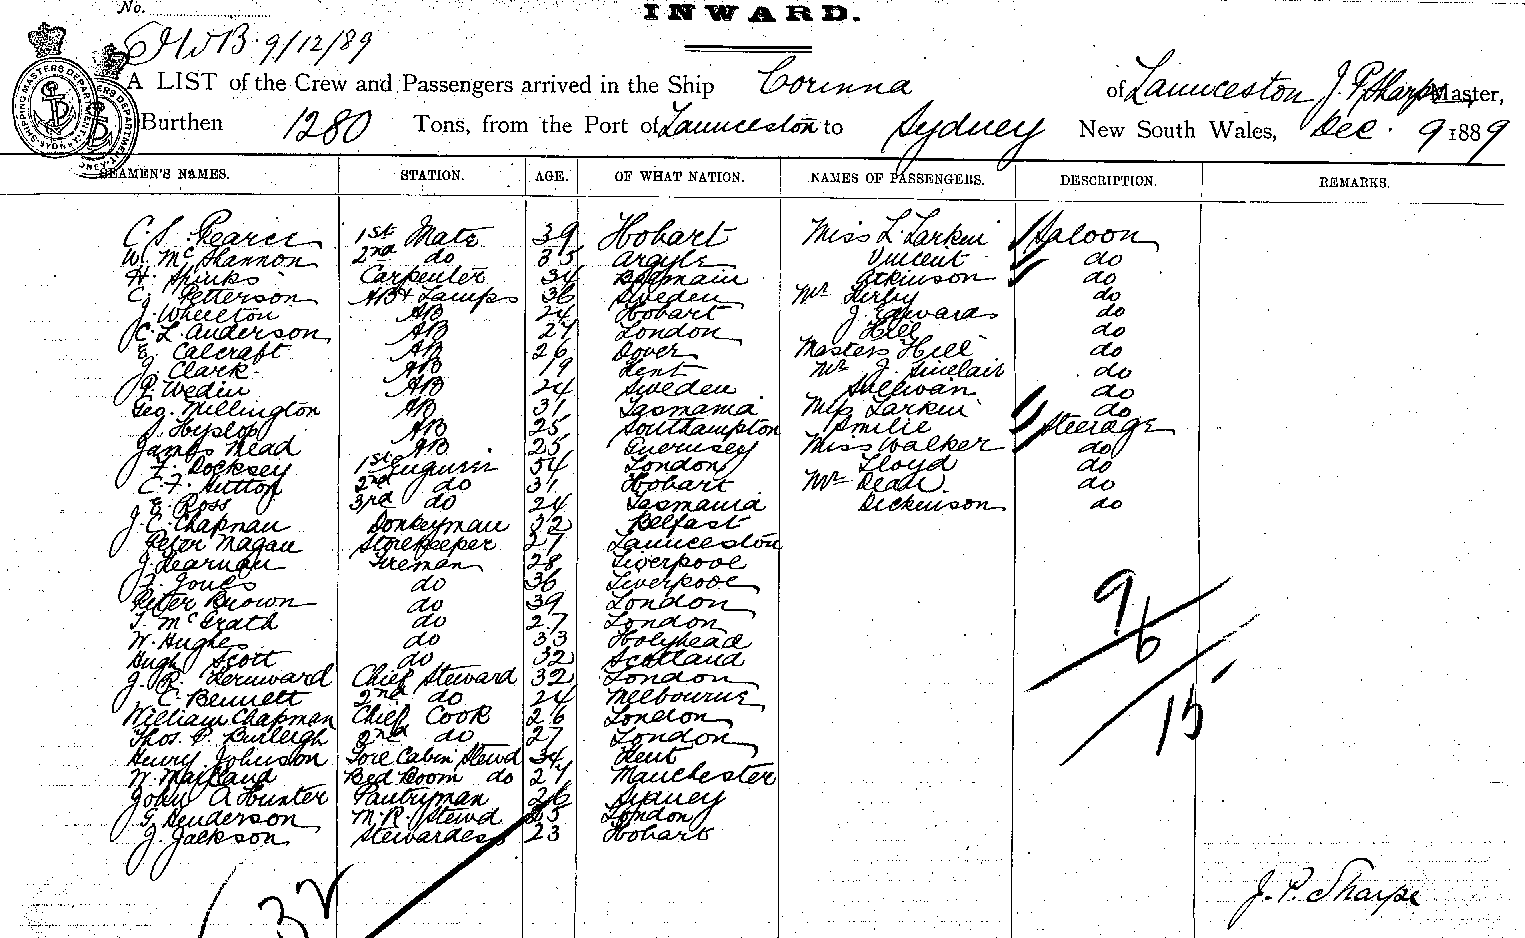 No.
INWARD.
JWB. 9/12/89
A LIST of the Crew and Passengers arrived in the Ship Corinna of Launceston J. P. Sharpe Master,
Burthen 1280 Tons, from the Port of Launceston to Sydney New South Wales, Dec. 9 1889
SEAMEN'S NAMES. STATION. AGE. OF WHAT NATION. NAMES OF PASSENGERS. DESCRIPTION. REMARKS.
C. S. Pearce 1st Mate 39 Hobart Miss L. Larkin Saloon
W. McShannon 2nd do 35 Argyle Vincent do
H. Spinks Carpenter 34 Balmain Atkinson do
C. Petterson AB & Lamps 36 Sweden Mr Kirby do
J. Wheelton AB 24 Hobart J. Edwards do
C. L. Anderson AB 27 London Hill do
E. Calcraft AB 26 Dover Masters Hill do
J. Clark AB 19 Kent Mr J. Sinclair do
P. Wedin AB 24 Sweden Sullivan do
Geo. Millington AB 31 Tasmania Miss Larkin do
S. Hyslop AB 25 Southampton Smilie Steerage
James Mead AB 25 Guernsey Miss Walker do
F. Docksey 1st Engineer 54 London Lloyd do
C. F. Hutton 2nd do 31 Hobart Mr Dean do
J. E. Ross 3rd do 24 Tasmania Dickinson do
J. C. Chapman Donkeyman 32 Belfast
Peter Magan Storekeeper 27 Launceston
J. Kearnan Fireman 28 Liverpool
F. Jones do 36 Liverpool
Peter Brown do 39 London
T. McGrath do 27 London
W. Hughes do 33 Holyhead
Hugh Scott do 32 Scotland
J. R. Chief Steward 32 London
C. Bennett 2nd do 24 Melbourne
William Chapman Chief Cook 26 London
Thos. P. Burleigh 2nd do 27 London
Henry Johnson Fore Cabin Stewd 34 Kent
W. Maitland Bed Room do 27 Manchester
John A Hunter Pantryman 26 Sydney
G. Henderson M. R. Stewd 35 London
J. Jackson Stewardess 23 Hobart
9
6
15
32
J. P. Sharpe